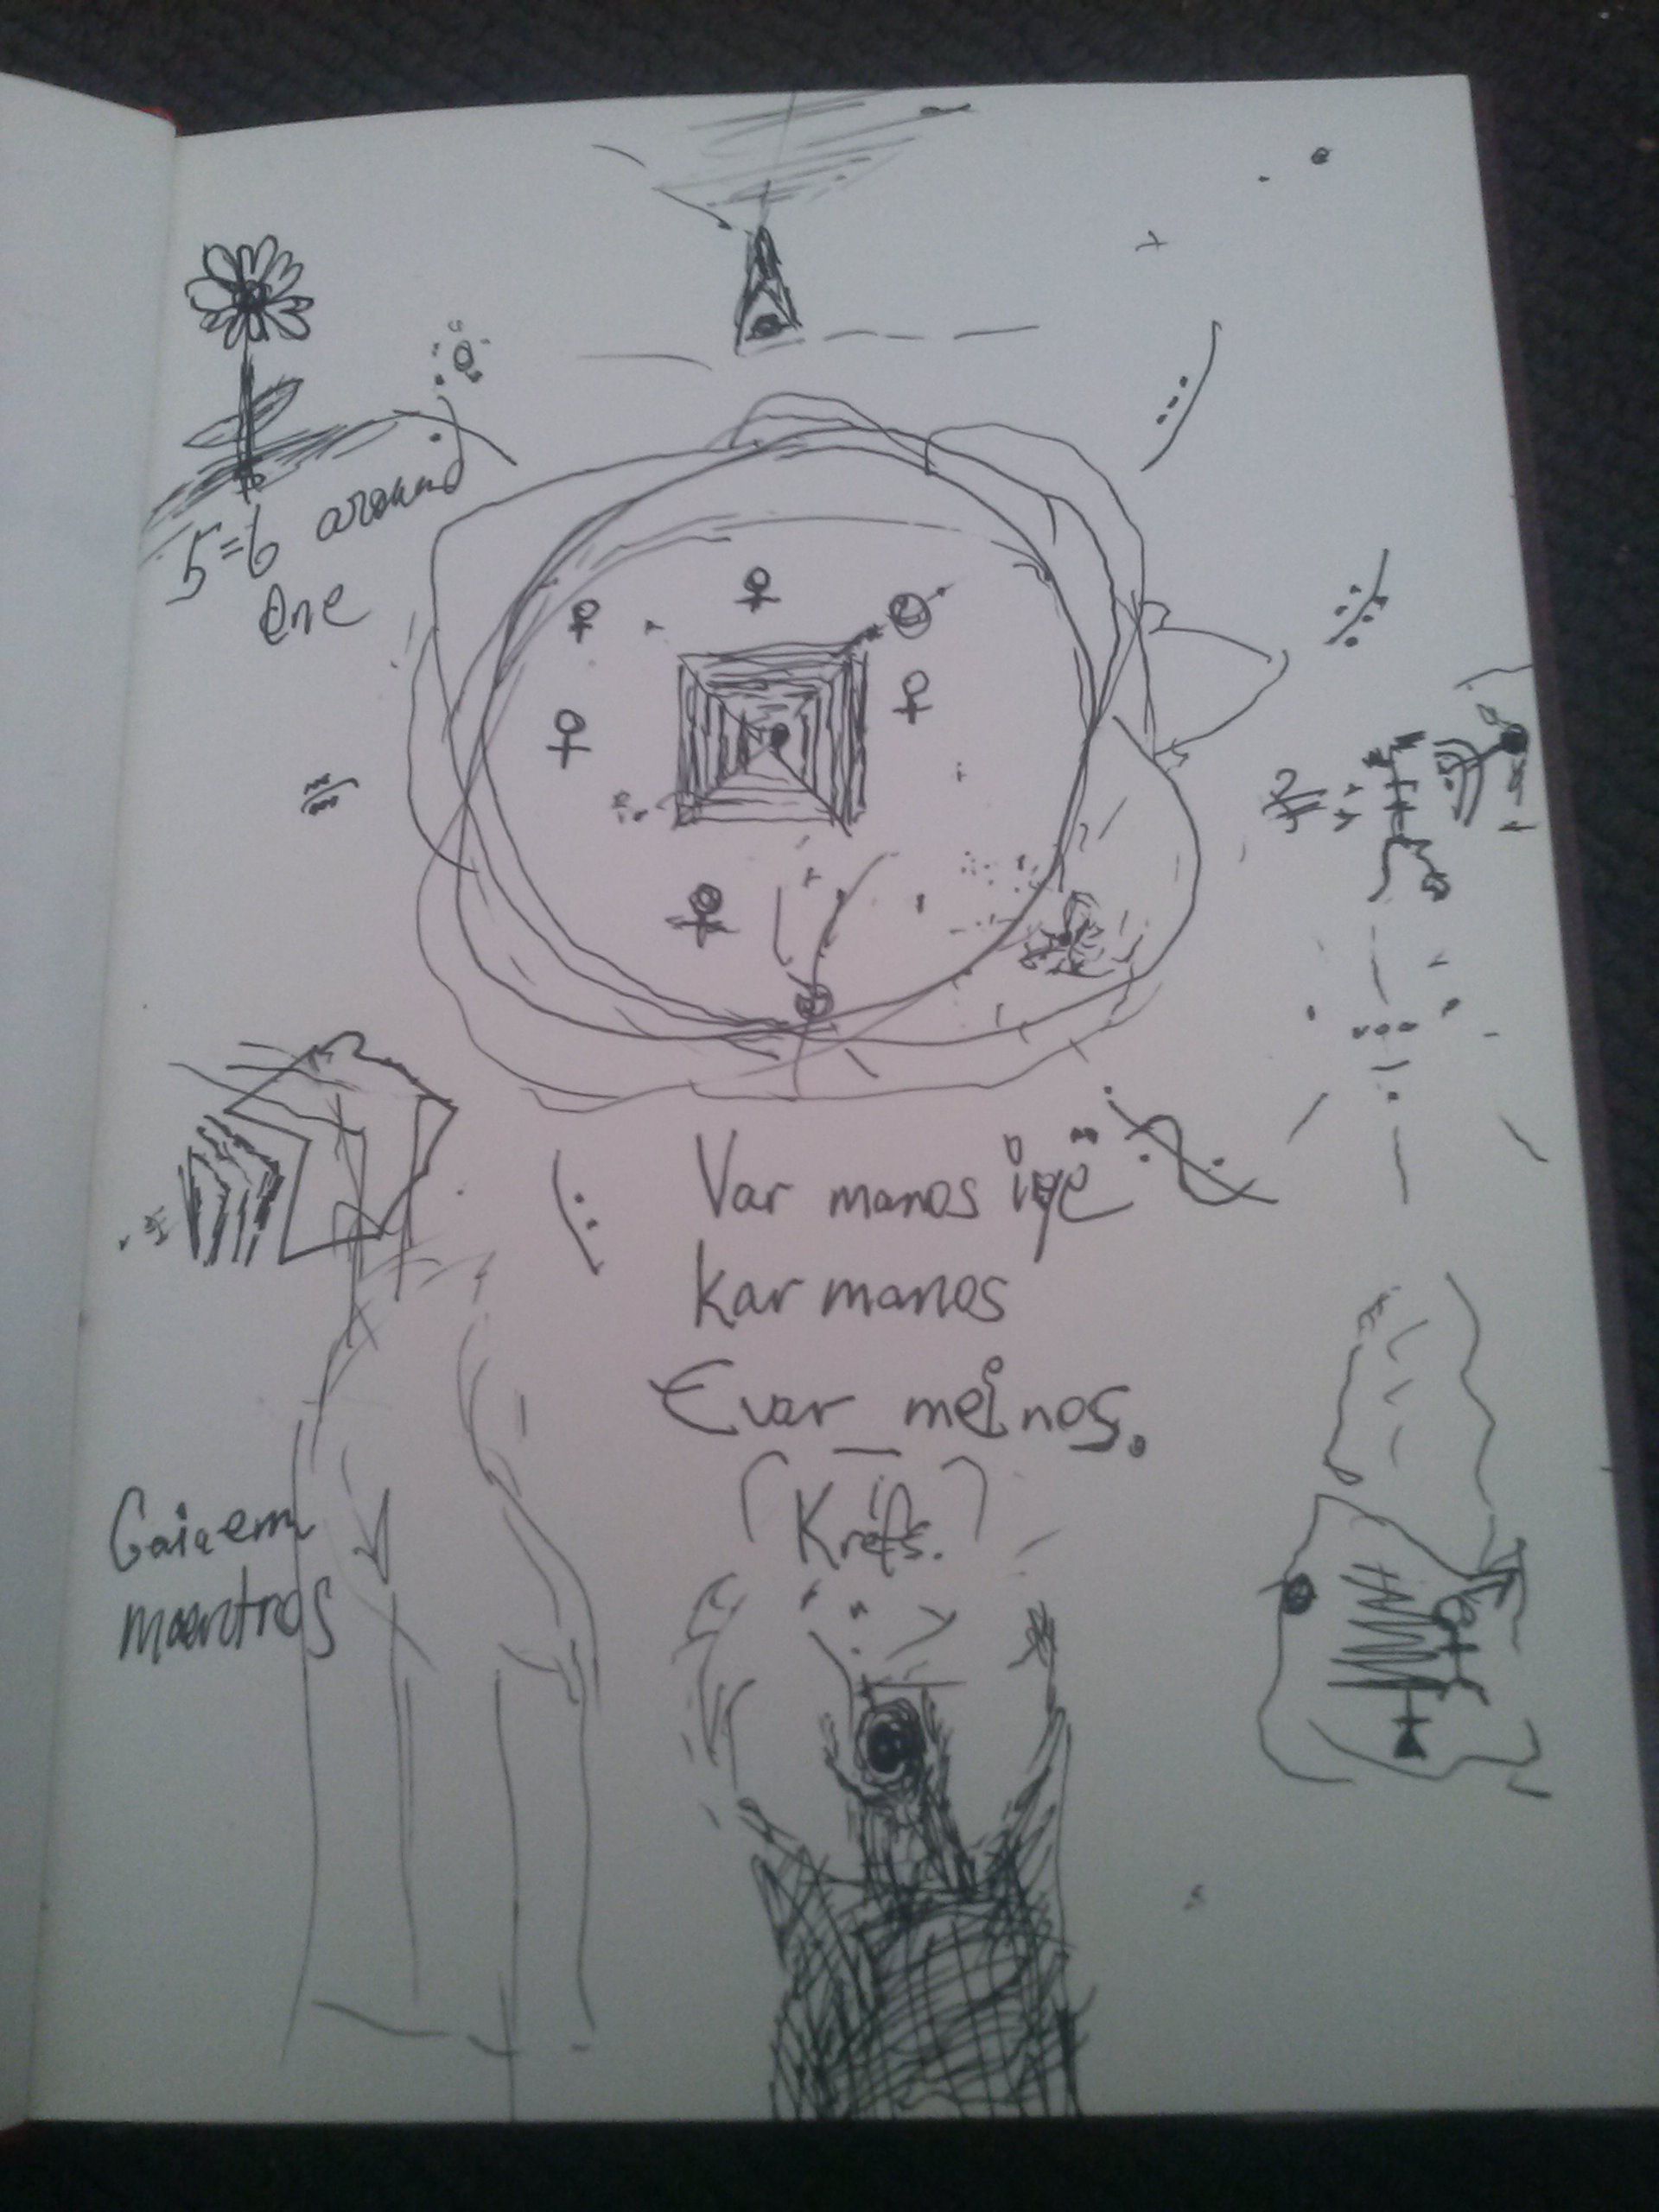 5=6 around
One
Var manos ïgë
kar manos
Evar meinos.
Krëfs.
Gaiaem
maentros